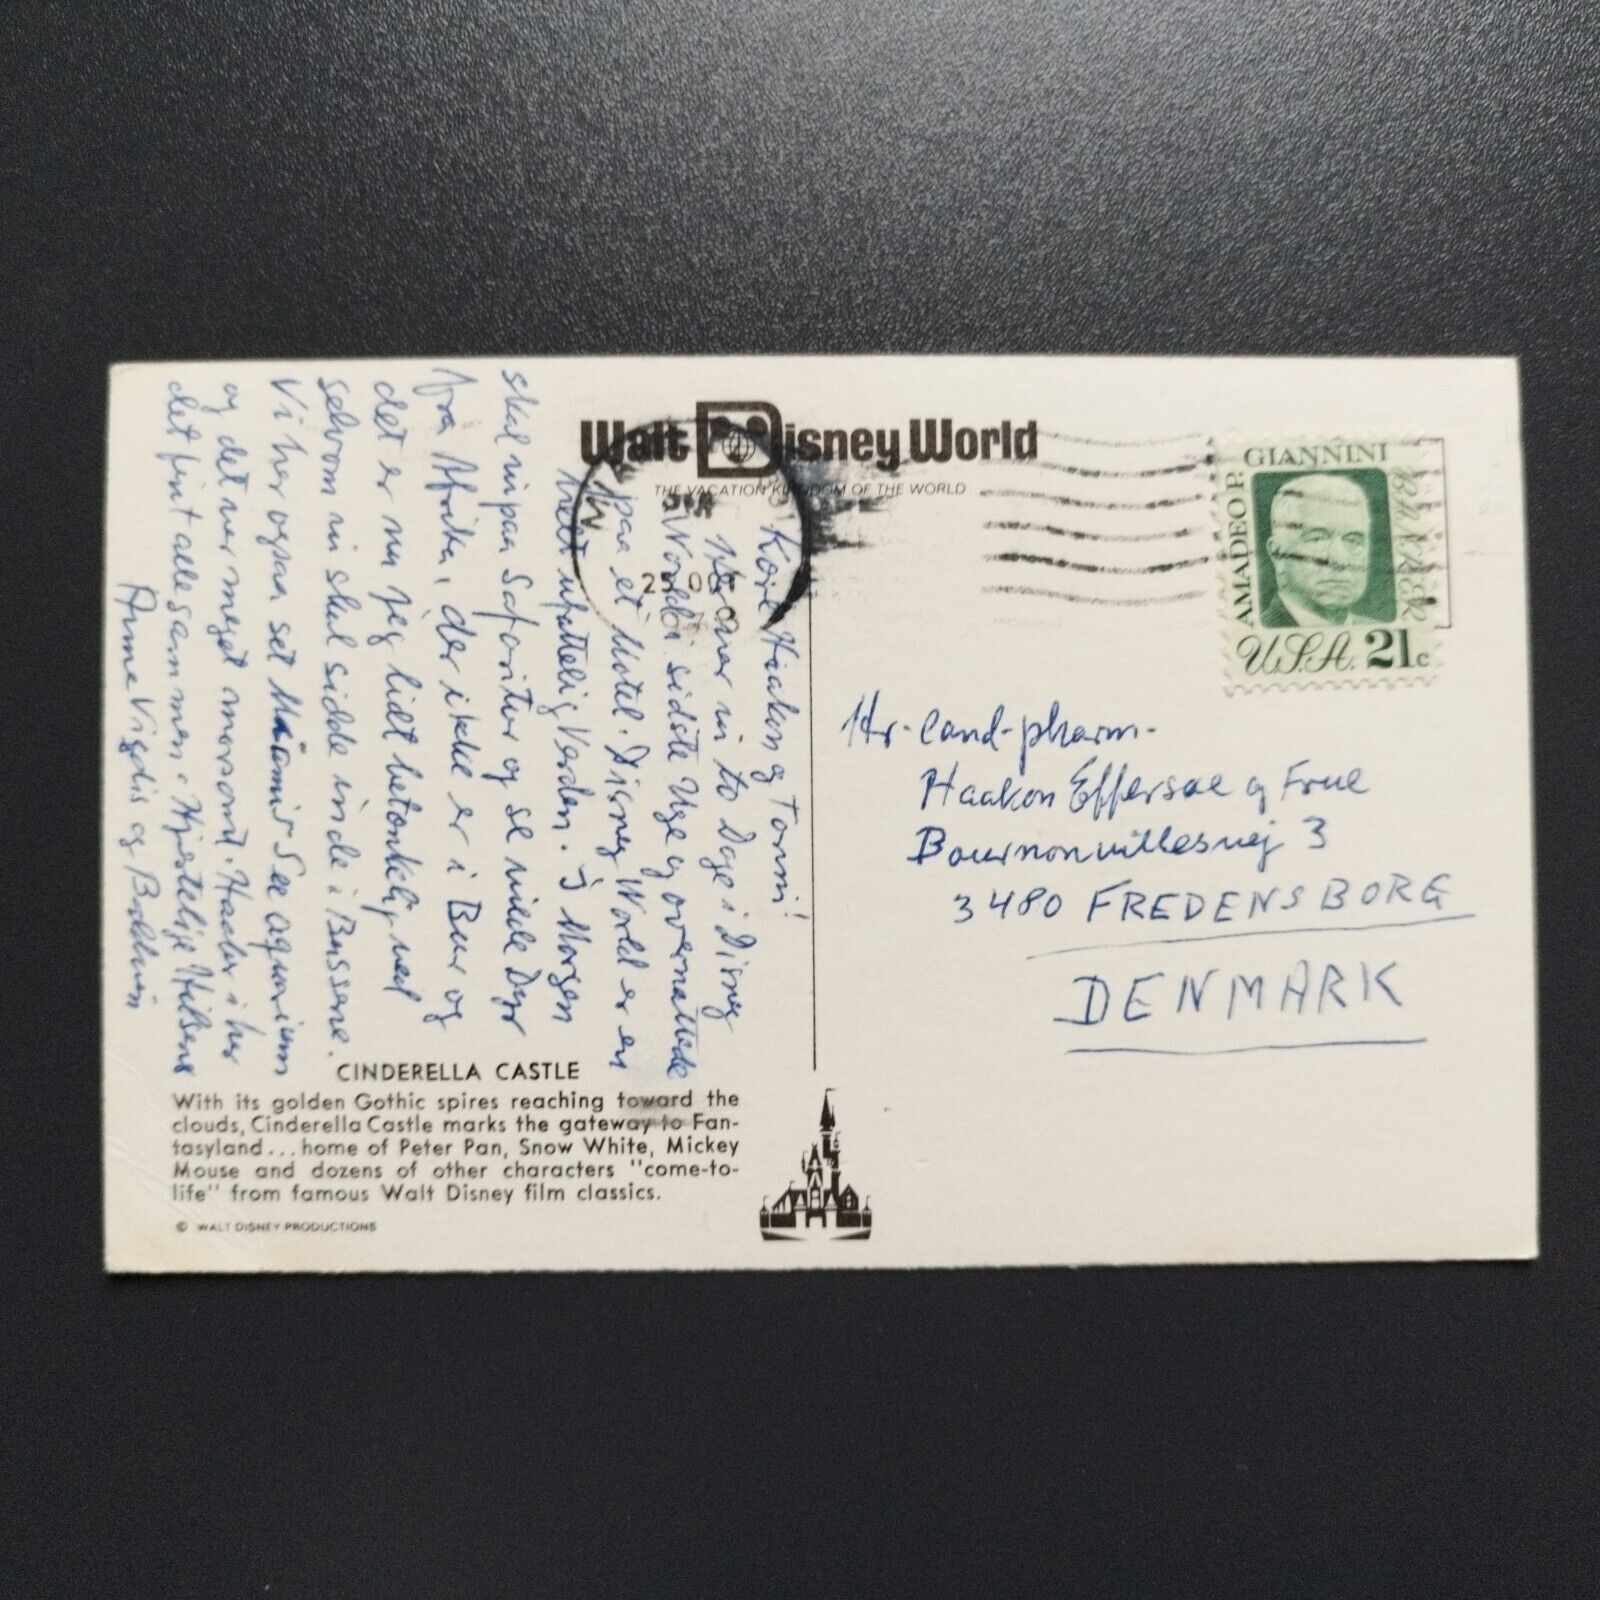 Walt Disney World
THE VACATION KINGDOM OF THE WORLD
Kære Haakon og Tommi!
Her var vi to Dage i Disney
World i sidste Uge og overnattede
paa et Motel. Disney World er en
helt ufattelig Verden. I Morgen
skal vi paa Safaritur og se vilde Dyr
fra Afrika, der ikke er i Bur og
det er nu jeg lidt betænkelig ved
selvom vi skal sidde inde i Bussene.
Vi har ogsaa set Miami Seeaquarium
og det var meget morsomt. Haaber i har
det fint allesammen. Hjertelige Hilsener
Anna Vigdis og
CINDERELLA CASTLE
With its golden Gothic spires reaching toward the
clouds, Cinderella Castle marks the gateway to Fan-
tasyland... home of Peter Pan, Snow White, Mickey
Mouse and dozens of other characters "come-to-
life" from famous Walt Disney film classics.
© WALT DISNEY PRODUCTIONS
25 OC
AMADEO P. GIANNINI
BANKER
U.S.A. 21c
Hr. Cand-pharm-
Haakon Effersøe og Frue
Bournonvillesvej 3
3480 FREDENSBORG
DENMARK